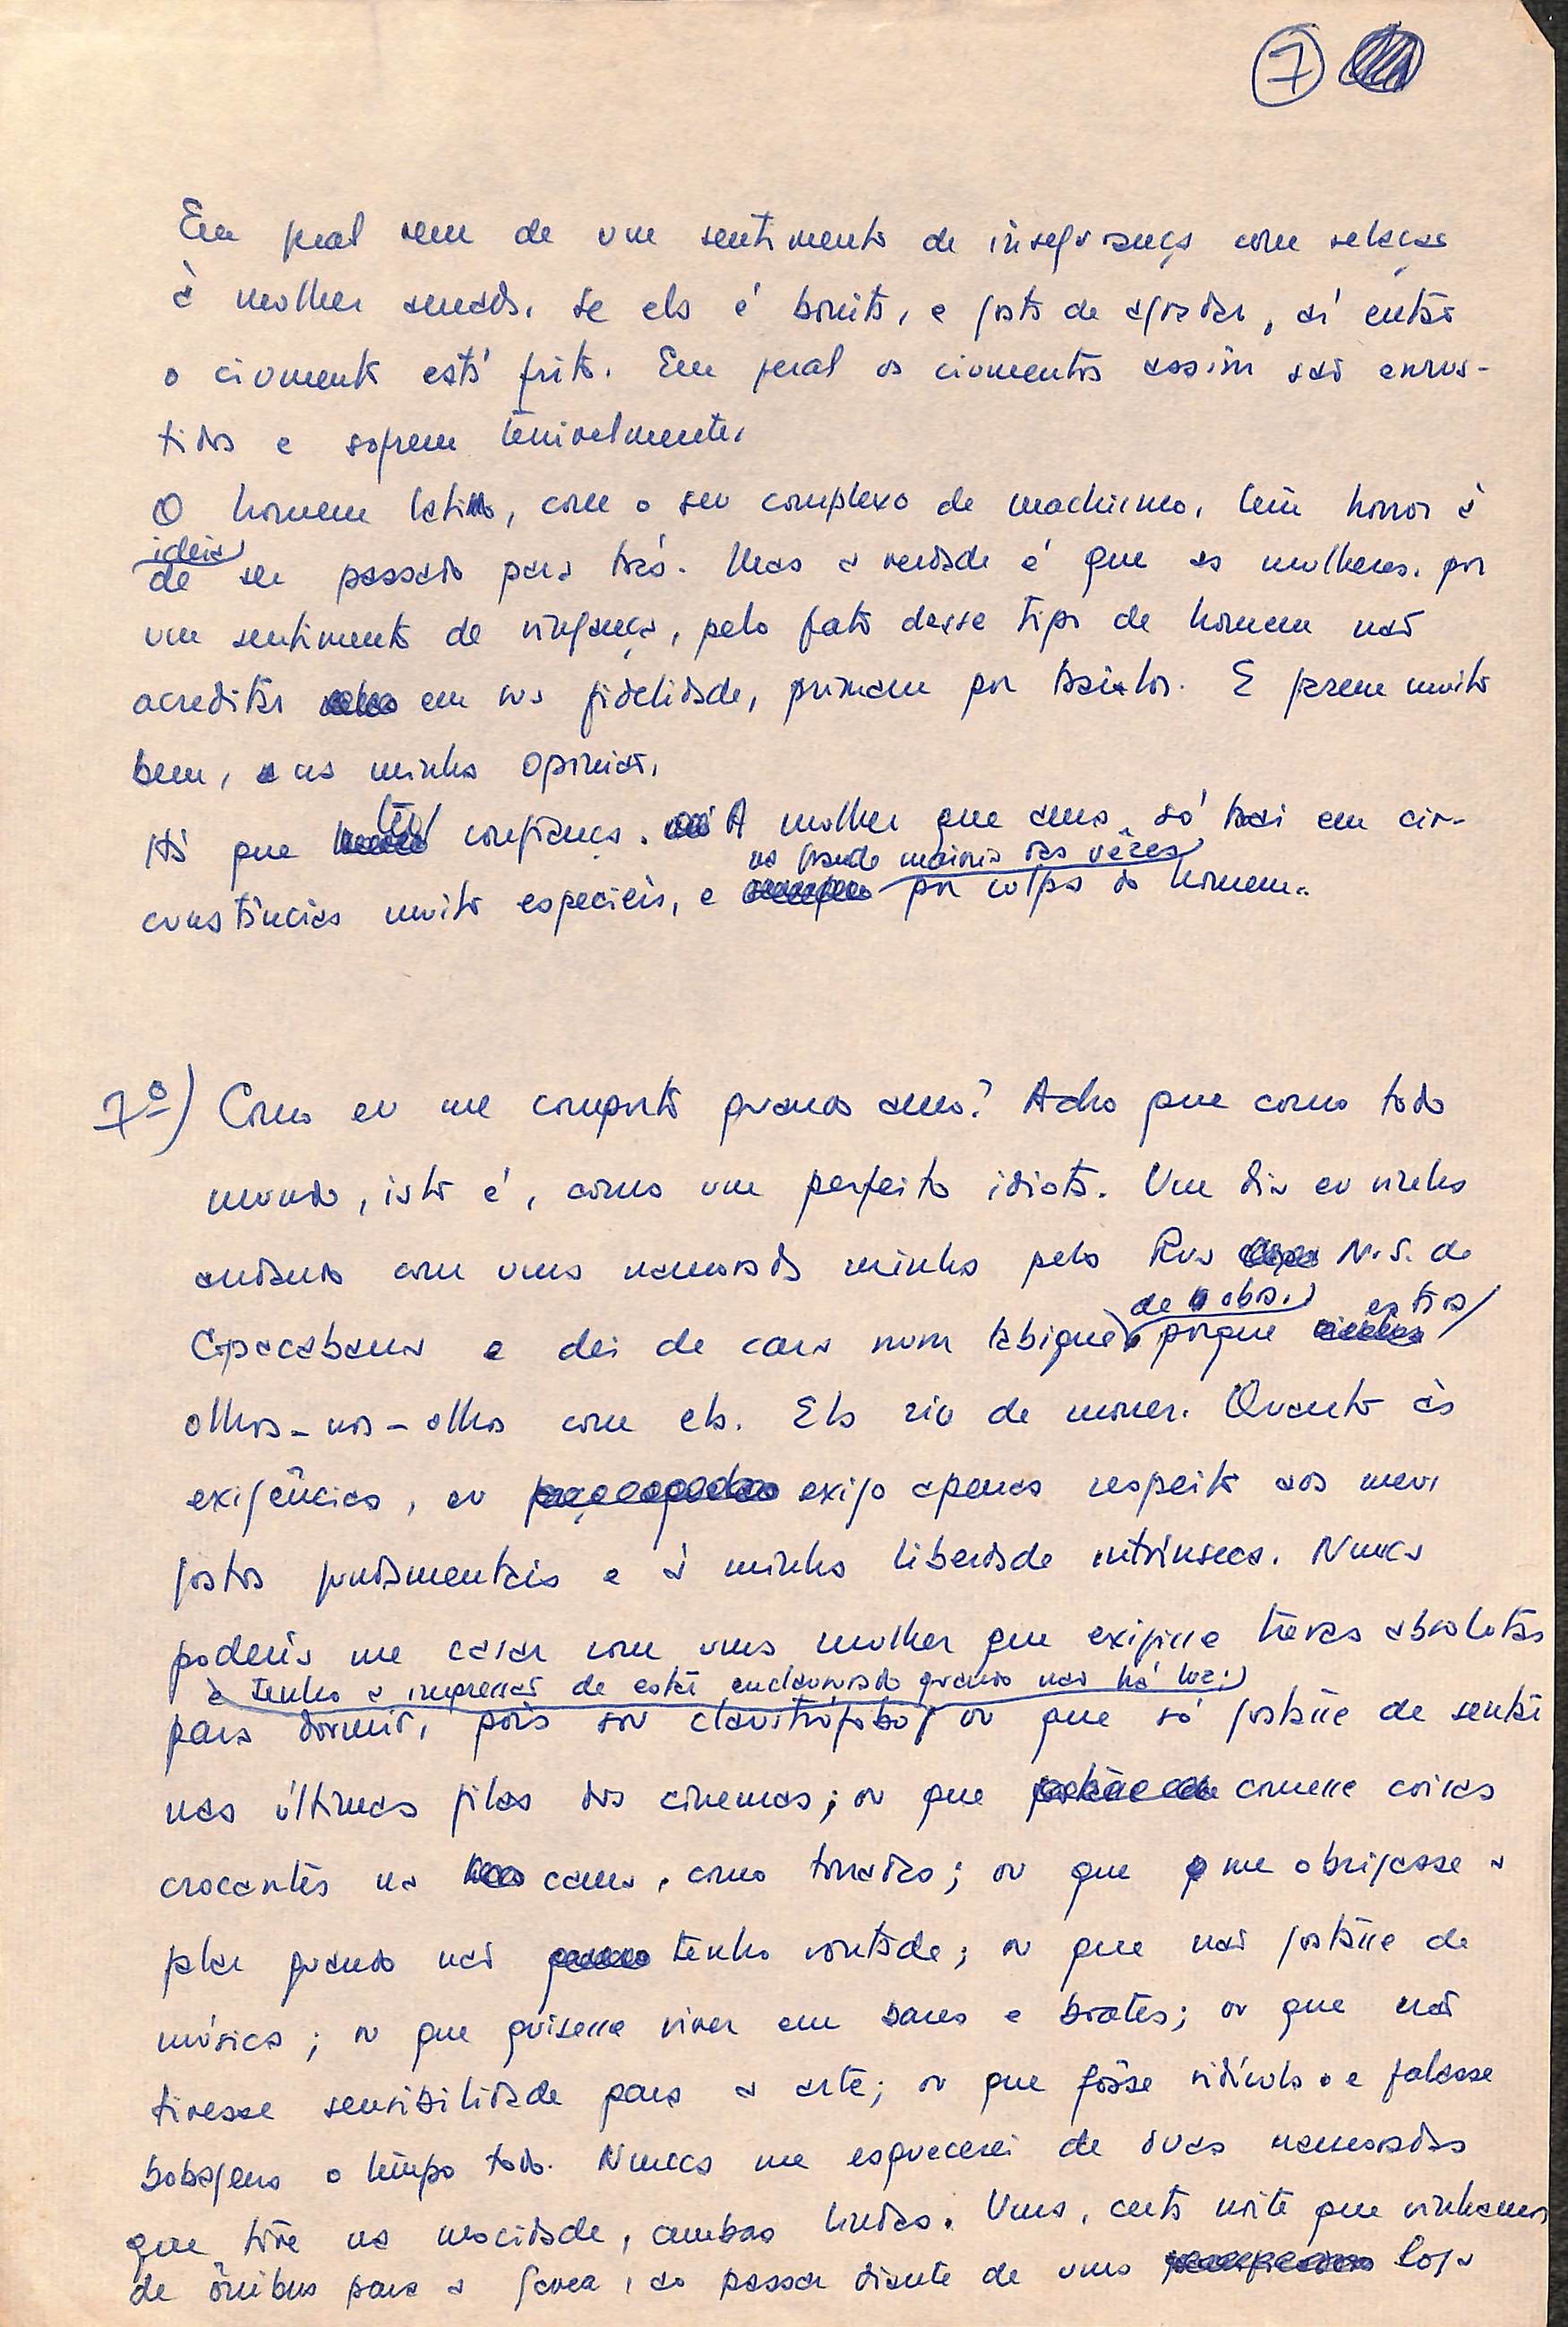 7
Em geral vem de um sentimento de insegurança com relação
à mulher amada. Se ela é bonita, e gosta de agradar, aí então
o ciumento está frito. Em geral os ciumentos assim são enrus-
tidos e sofrem terrivelmente.
O homem latino, com o seu complexo de machismo, tem horror à
ideia
de ser passado para trás. Mas a verdade é que as mulheres, por
um sentimento de vingança, pelo fato desse tipo de homem não
acreditar em sua fidelidade, primam por traí-los. E fazem muito
bem, na minha opinião.
ter
Há que confiança. A mulher que ama só trai em cir-
na grande maioria das vêzes
cunstâncias muito especiais, e por culpa do homem.
7º) Como eu me comporto quando amo? Acho que como todo
mundo, isto é, como um perfeito idiota. Um dia eu vinha
andando com uma namorada minha pela Rua N. S. de
de obra, estava
Copacabana e dei de cara num tabique porque
olhos-nos-olhos com ela. Ela riu de morrer. Quanto às
exigências, eu exijo apenas respeito aos meus
gostos fundamentais e à minha liberdade intrínseca. Nunca
poderia me casar com uma mulher que exigisse trevas absolutas
e tenho a impressão de estar enclausurado quando não há luz;
para dormir, pois sou claustrófobo ou que só gostasse de sentar
nas últimas filas dos cinemas; ou que comesse coisas
crocantes na cama, como torradas; ou que me obrigasse a
falar quando não tenho vontade; ou que não gostasse de
música; ou que quisesse viver em bares e boates; ou que não
tivesse sensibilidade para a arte; ou que fôsse ridícula e falasse
bobagens o tempo todo. Nunca me esquecerei de duas namoradas
que tive na mocidade, ambas lindas. Uma, certa noite que vinhamos
de ônibus para a Gavea, ao passar diante de uma loja